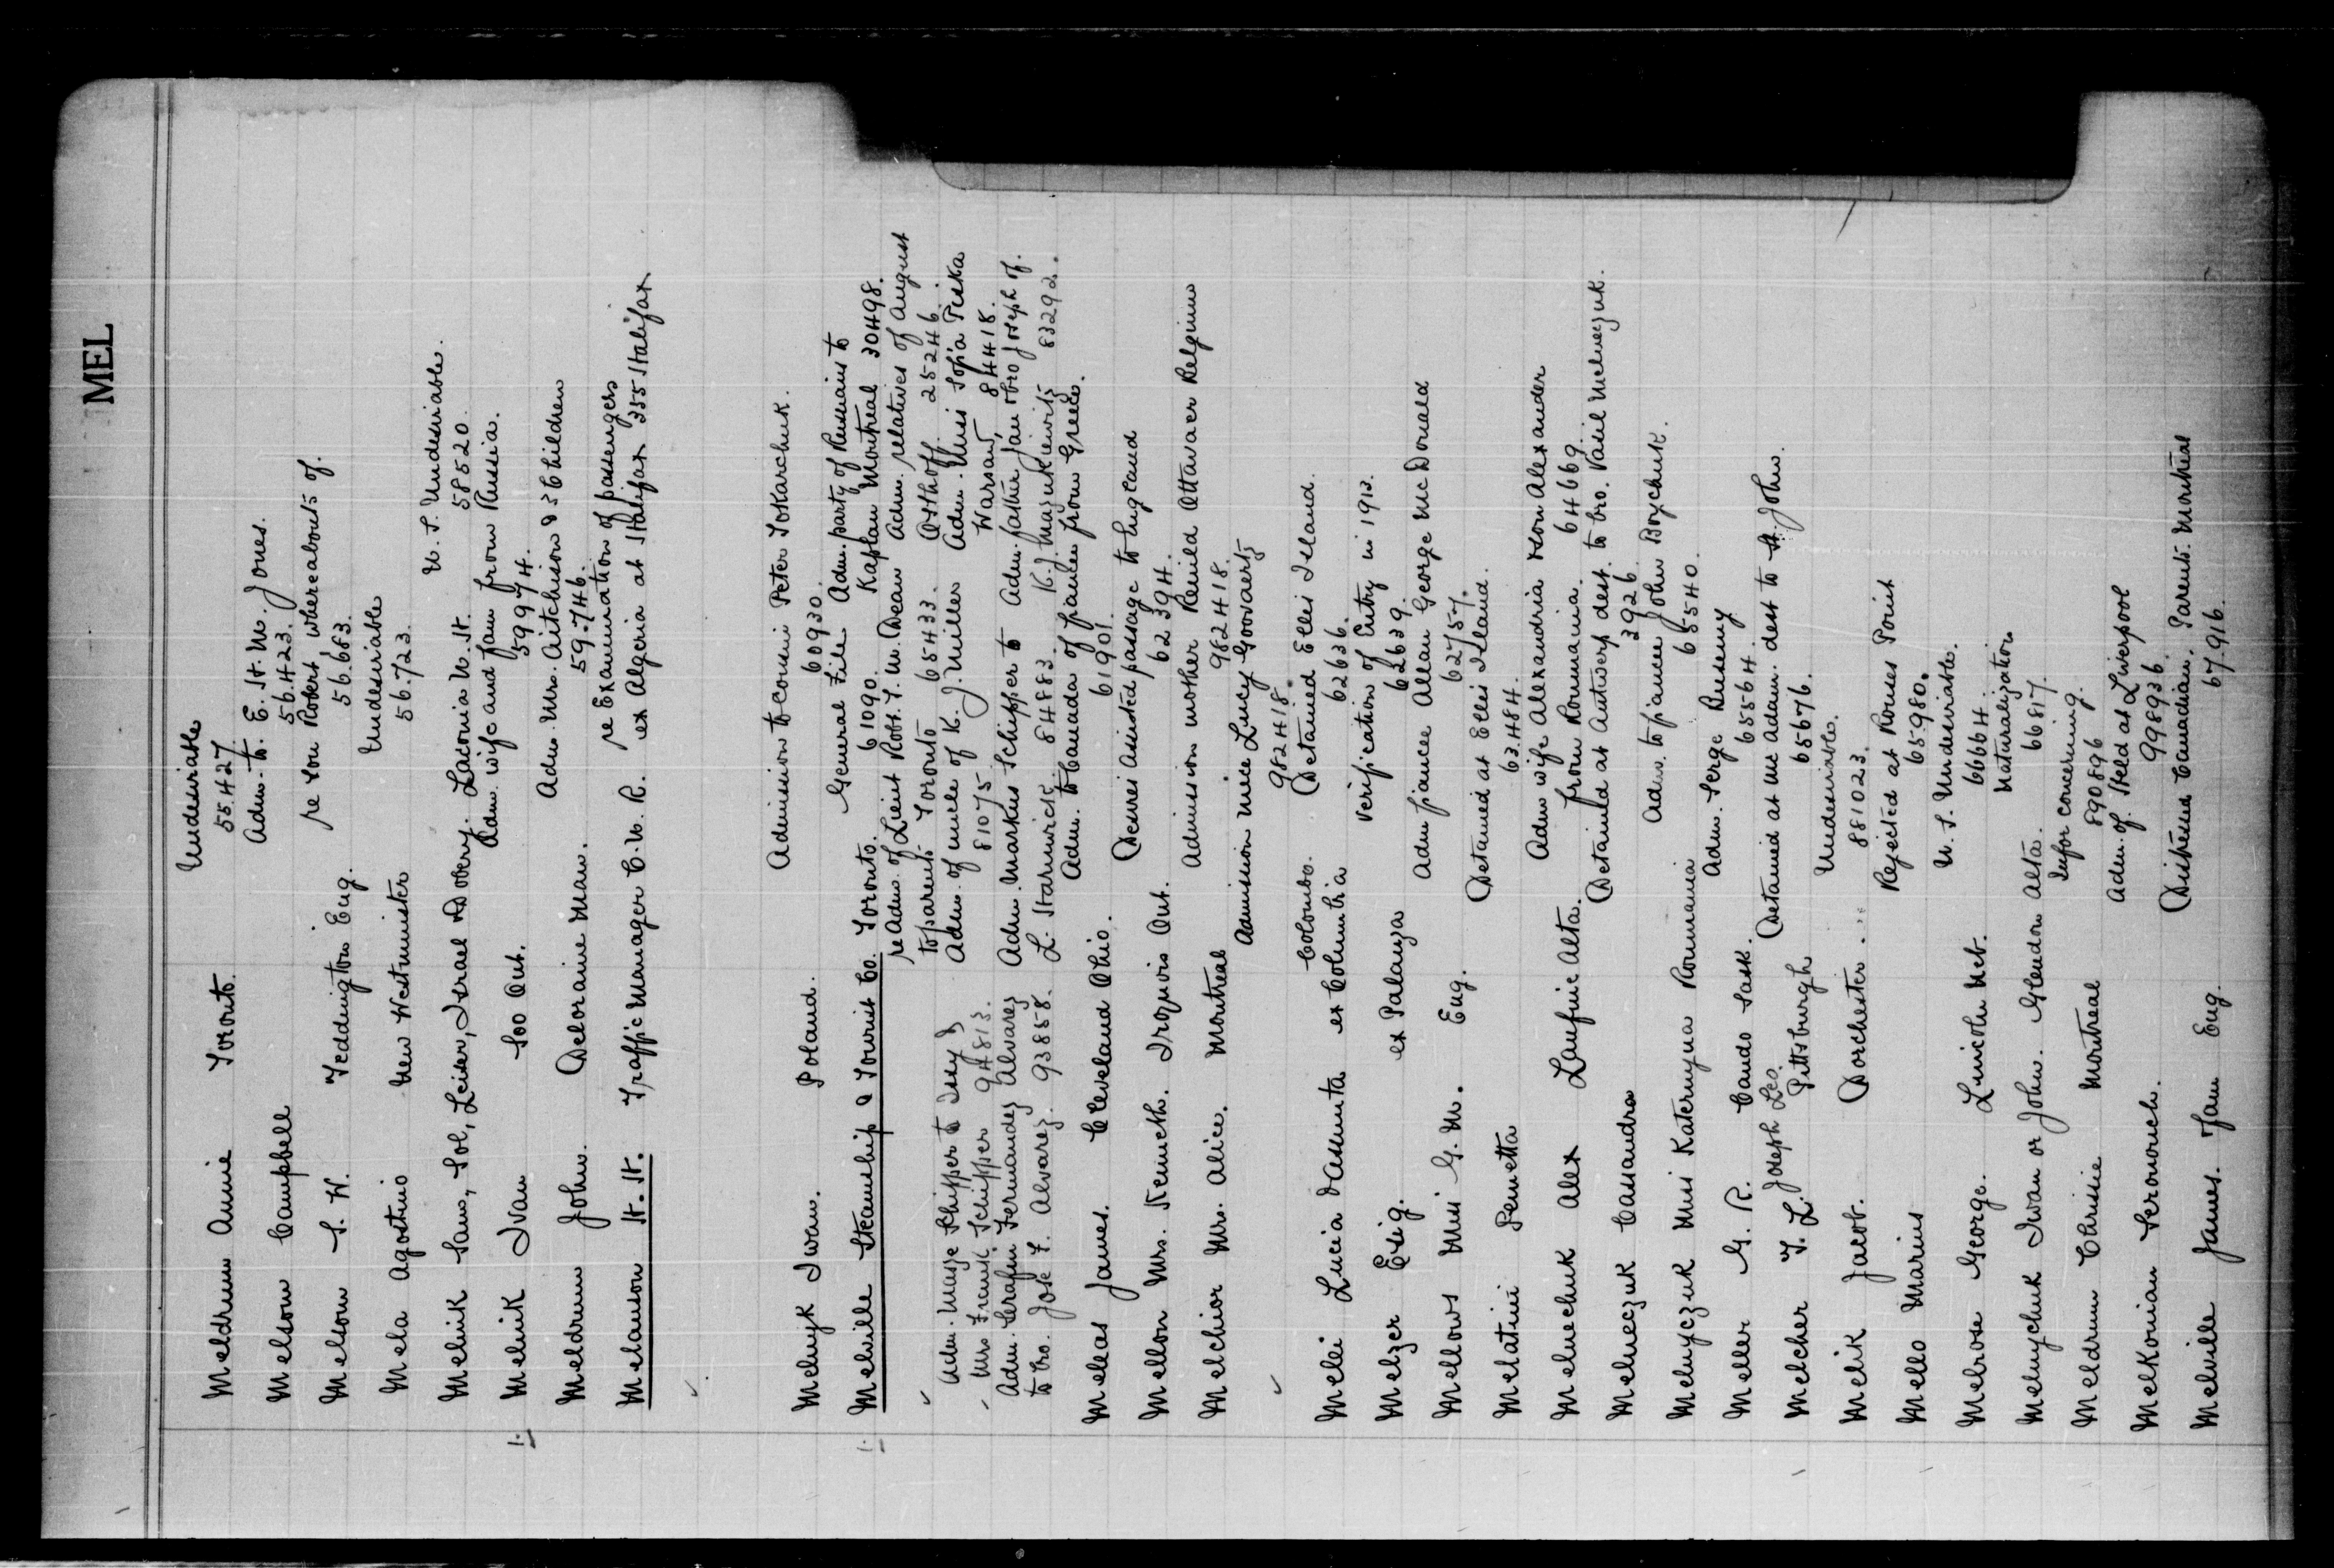 MEL
Undesirable
Meldrum Annie Toronto. 55427
Adm. to E. St. M. Jones.
Melsom Campbell 56423.
re son Robert, whereabouts of.
Melsom S. W. Teddington Eng. 56683.
Undesirable
Mela Agostino New Westminster 56723.
U.S. Undesirable.
Melnik Sam, Sol, Leiser, Israel & Dobery. Laconia N.H. 58520
Adm. wife and fam from Russia.
Melnik Ivan Soo Ont. 59974.
Adm. Mrs. Aitchison & 3 children
Meldrum John. Deloraine Man. 59746.
re Examination of passengers
Melanson H.H. Traffic Manager C.N.R. ex Algeria at Halifax 355 Halifax
Admission to cousin Peter Tokarchuk.
Melnyk Iwan. Poland. 60930.
General File Adm. party of Russians to
Melville Steamship & Tourist Co. Toronto. 61090. Kaplan Montreal 30498.
re Adm. of Lieut Robt. T. W. Dean Adm. relatives of August
to parents Toronto 65433. Osthoff 25246.
Adm. of uncle of K. J. Miller Adm. Miss Sofia Peska
81075 Warsaw, 84418.
Adm. Markus Schipper to Adm. father Jan & bro Joseph of.
L. Starnwick. 84883. K. J. Mazurkiewitz 83292.
Mrs Frenk. Schipper 94813.
Adm. Serafin Fernandez Alvarez
to bro. Jose F. Alvarez. 93858.
Adm. to Canada of fiancee from Greece.
Meleas James. Cleveland Ohio. 61901
Desires assisted passage to England
Mellon Mrs. Kenneth. Iroquois Ont. 62394.
Admission mother Renild Ottavaer Belgium
Melchior Mrs. Alice. Montreal 982418.
Admission niece Lucy Goovaerts
982418.
Colombo. Detained Ellis Island.
Mellei Lucia & Assunta ex Columbia 62636.
Verification of Entry in 1913.
Melzer Esig. ex Palanza 62639.
Adm fiancee Allan George McDonald
Mellows Miss G. M. Eng. 62757.
Detained at Ellis Island.
Melatini Pemetta 63484.
Adm wife Alexandria & son Alexander
Melnechuk Alex Lanfine Alta. from Roumania. 64669
Detained at Antwerp dest. to bro. Vasil Melneczuk.
Melneczuk Cassandra 3926
Adm. to fiancee John Boychuk.
Melnyczuk Miss Katernyna Roumania 65540.
Adm. Serge Rusemy
Meller G. R. Cando Sask. 65564
Joseph Leo. Detained at Me Adam. dest to St. John.
Melcher T. L. Pittsburgh 65676.
Undesirable.
Melik Jacob. Dorchester. 881023.
Rejected at Rouses Point
Mello Marius 65980.
U.S. Undesirable.
Melrose George. Lincoln Neb. 66664.
Naturalization
Melnychuk Iwan or John. Glendon Alta. 66817.
Infor concerning.
Meldrum Chrissie Montreal 890896
Adm. of. Held at Liverpool
Melkonian Seronouch. 998936.
Distressed Canadian. Parents. Montreal
Melville James. & fam Eng. 67916.